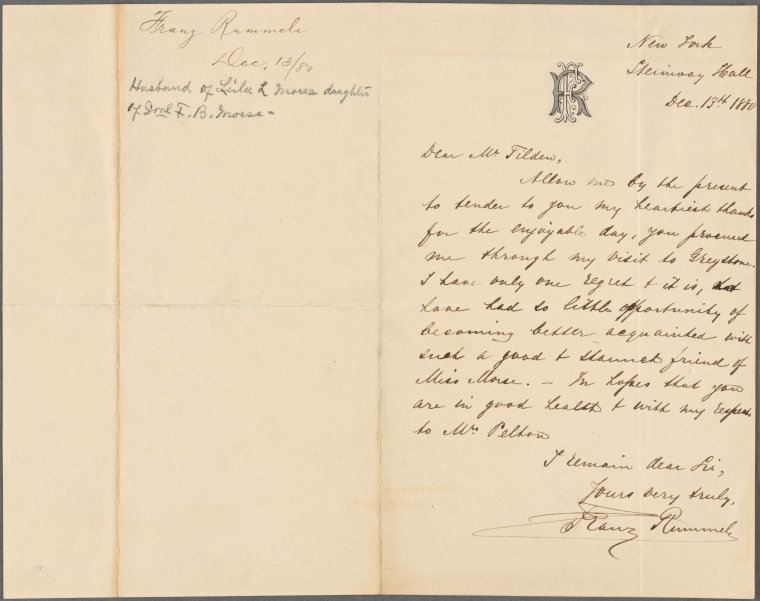 Franz Rummele
Dec. 13/80
Husband of Leila L Morse daughter
of Saml F. B. Morse -
New York
Steinway Hall
Dec. 13th 1880
FR
Dear Mr Tilden,
Allow me by the present
to tender to you my heartiest thanks
for the enjoyable day, you procured
me through my visit to Greystone.
I have only one regret & it is,
have had so little opportunity of
becoming better acquainted with
such a good & staunch friend of
Miss Morse. - In hopes that you
are in good health & with my respects
to Mrs Pelton
I remain dear Sir,
Yours very truly,
Franz Rummel